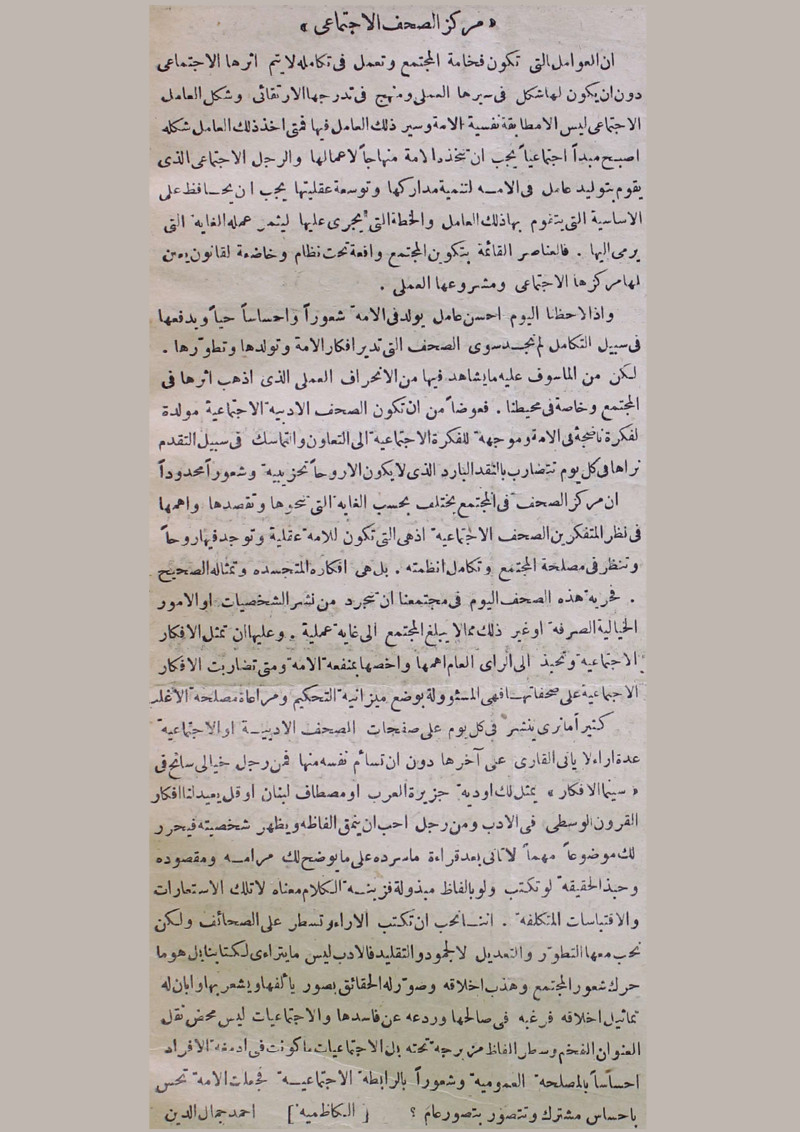 « مركز الصحف الاجتماعى »
ان العوامل التى تكون فخامة المجتمع وتعمل فى تكامله لايتم اثرها الاجتماعى
دون ان يكون لها شكل فى سيرها العملى ومنهج فى تدرجها الارتقائى وشكل العامل
الاجتماعى ليس الامطابقة نفسية الامة وسير ذلك العامل فيها فمتى اخذ ذلك العامل شكله
اصبح مبدأ اجتماعياً يجب ان تتخذه الامة منهاجاً لاعمالها والرجل الاجتماعى الذى
يقوم بتوليد عامل فى الامـه لتنمية مداركها وتوسعة عقليتها يجب ان يحـافظ على
الاساسية التى يتقوم بها ذلك العامل والخطة التى يجرى عليها ليثمر عمله الغايه التى
يرمى اليها . فالعناصر القائمة بتكوين المجتمع واقعة تحت نظام وخاضعة لقانون يعين
لها مركزها الاجتماعى ومشروعها العملى .
واذا لاحظنا اليوم احسن عامل يولد فى الامه شعوراً واحساساً حياً ويدفعها
فى سبيل التكامل لم نجـد سوى الصحف التى تدير افكار الامة وتولدها وتطوّرها .
لكن من المأسوف عليه مايشاهد فيها من الانحراف العملى الذى اذهب اثرها فى
المجتمع وخاصة فى محيطنا . فعوضاً من ان تكون الصحف الادبية الاجتماعية مولدة
لفكرة ناضجة فى الامة وموجهة للفكرة الاجتماعية الى التعاون والتماسك فى سبيل التقدم
نراها فى كل يوم تتضارب بالنقد البارد الذى لايكون الاروحاً تحزبيية وشعوراً محدوداً
ان مركز الصحف فى المجتمع يختلف بحسب الغاية التى تنحوها وتقصدها واهمها
فى نظر المتفكرين الصحف الاجتماعية اذهى التى تكون للامه عقلية وتوجد فيها روحاً
وتنظر فى مصلحة المجتمع وتكامل انظمته . بل هى افكاره المتجسده وتمثاله الصحيح
. فحريه هذه الصحف اليوم فى مجتمعنا ان تتجرد من نشر الشخصيات او الامور
الخيالية الصرفه او غير ذلك ممالا يبلغ المجتمع الى غايه عملية . وعليها ان تمثل الافكار
الاجتماعيه وتحبذ الى الراى العام اهمها واخصها بمنفعه الامه ومتى تضاربت الافكار
الاجتماعية على صفحاتهـا فهى المسئوولة بوضع ميزانيه التحكيم ومراعاة مصلحه الاغلب
كثيراً مانرى ينشر فى كل يوم على صفحات الصحف الادبيـة او الاجتماعيه
عدة اراء لا يأتى القارى على آخرها دون ان تسأم نفسه منها فمن رجل خيالى سائح فى
« سينما الافكار » يمثل لك اودية جزيرة العرب او مصطاف لبنان اوقل يعيد لنا افكار
القرون الوسطى فى الادب ومن رجل احب ان ينمق الفاظه ويظهر شخصيته فيحرر
لك موضوعاً مهماً لاتأتى بعد قراءة ماسرده على مايوضح لك مرامـه ومقصوده
وحبذ الحقيقه لو تكتب ولو بالفاظ مبذولة فزينـة الكلام معناه لاتلك الاستعارات
والاقتباسات المتكلفه . انتـانحب ان تكتب الاراء وتسطر على الصحائف ولكن
نحب معها التطوّر والتعديل لا الجمود والتقليد فالادب ليس مايتراءى لكتابنا بل هو ما
حرك شعور المجتمع وهذب اخلاقه وصوّر له الحقائق بصور يألفها ويشعر بها وابان له
تماثيل اخلاقه فرغبه فى صالحها وردعه عن فاسدها والاجتماعيات ليس محض نقل
العنوان الفخم وسطر الفاظ مزبرجه تحته بل الاجتماعيات ماكونت فى ادمغه الافراد
احساساً بالمصلحه العموميه وشعوراً بالرابطه الاجتماعيـه فجعلت الامه تحس
باحساس مشترك وتتصور بتصور عام ؟ [ الكاظميه ] احمد جمال الدين